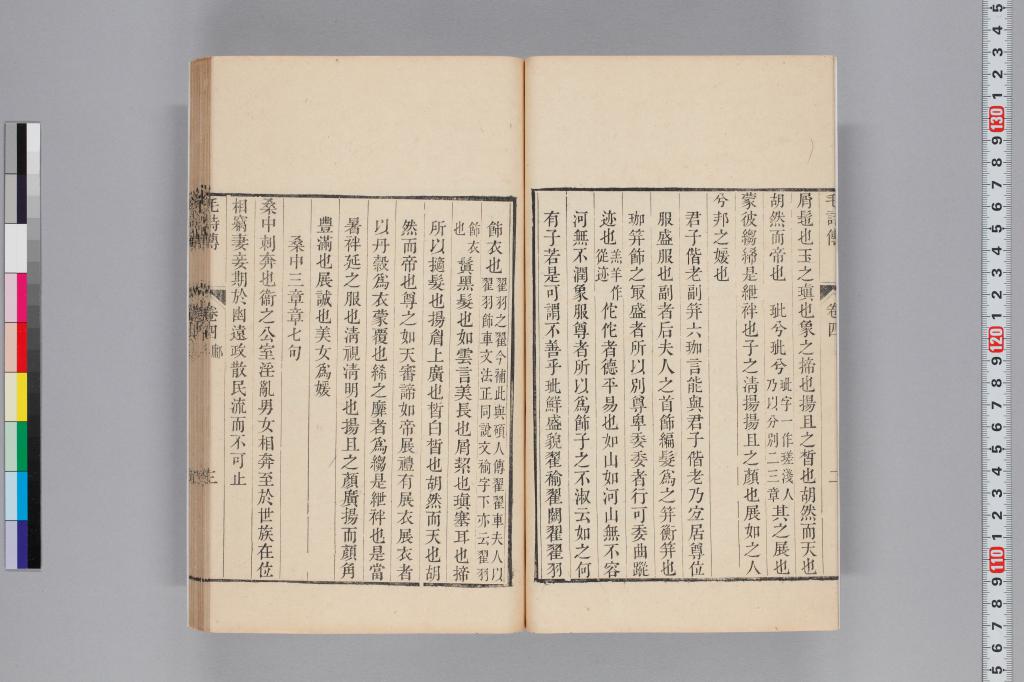 毛詩傳 卷四 二
屑髢也玉之瑱也象之揥也揚且之皙也胡然而天也
胡然而帝也 玼兮玼兮 玼字一作瑳淺人乃以分別二三章 其之展也
蒙彼縐絺是紲袢也子之清揚揚且之顏也展如之人
兮邦之媛也
君子偕老副笄六珈言能與君子偕老乃宜居尊位
服盛服也副者后夫人之首飾編髮爲之笄衡笄也
珈笄飾之最盛者所以別尊卑委委者行可委曲蹤
迹也 羔羊作從迹 佗佗者德平易也如山如河山無不容
河無不潤象服尊者所以爲飾子之不淑云如之何
有子若是可謂不善乎玼鮮盛皃翟褕翟闕翟羽
飾衣也 翟羽之翟今補此與碩人傳翟翟車夫人以翟羽飾車文法正同說文褕字下亦云翟羽
飾衣也 鬒黑髮也如雲言美長也屑絜也瑱塞耳也揥
所以擿髮也揚眉上廣也皙白皙也胡然而天也胡
然而帝也尊之如天審諦如帝展禮有展衣展衣者
以丹縠爲衣蒙覆也絺之靡者爲縐是紲袢也是當
暑袢延之服也清視清明也揚且之顏廣揚而顏角
豐滿也展誠也美女爲媛
桑中三章章七句
桑中刺奔也衞之公室淫亂男女相奔至於世族在位
相竊妻妾期於幽遠政散民流而不可止
毛詩傳 卷四 鄘 三